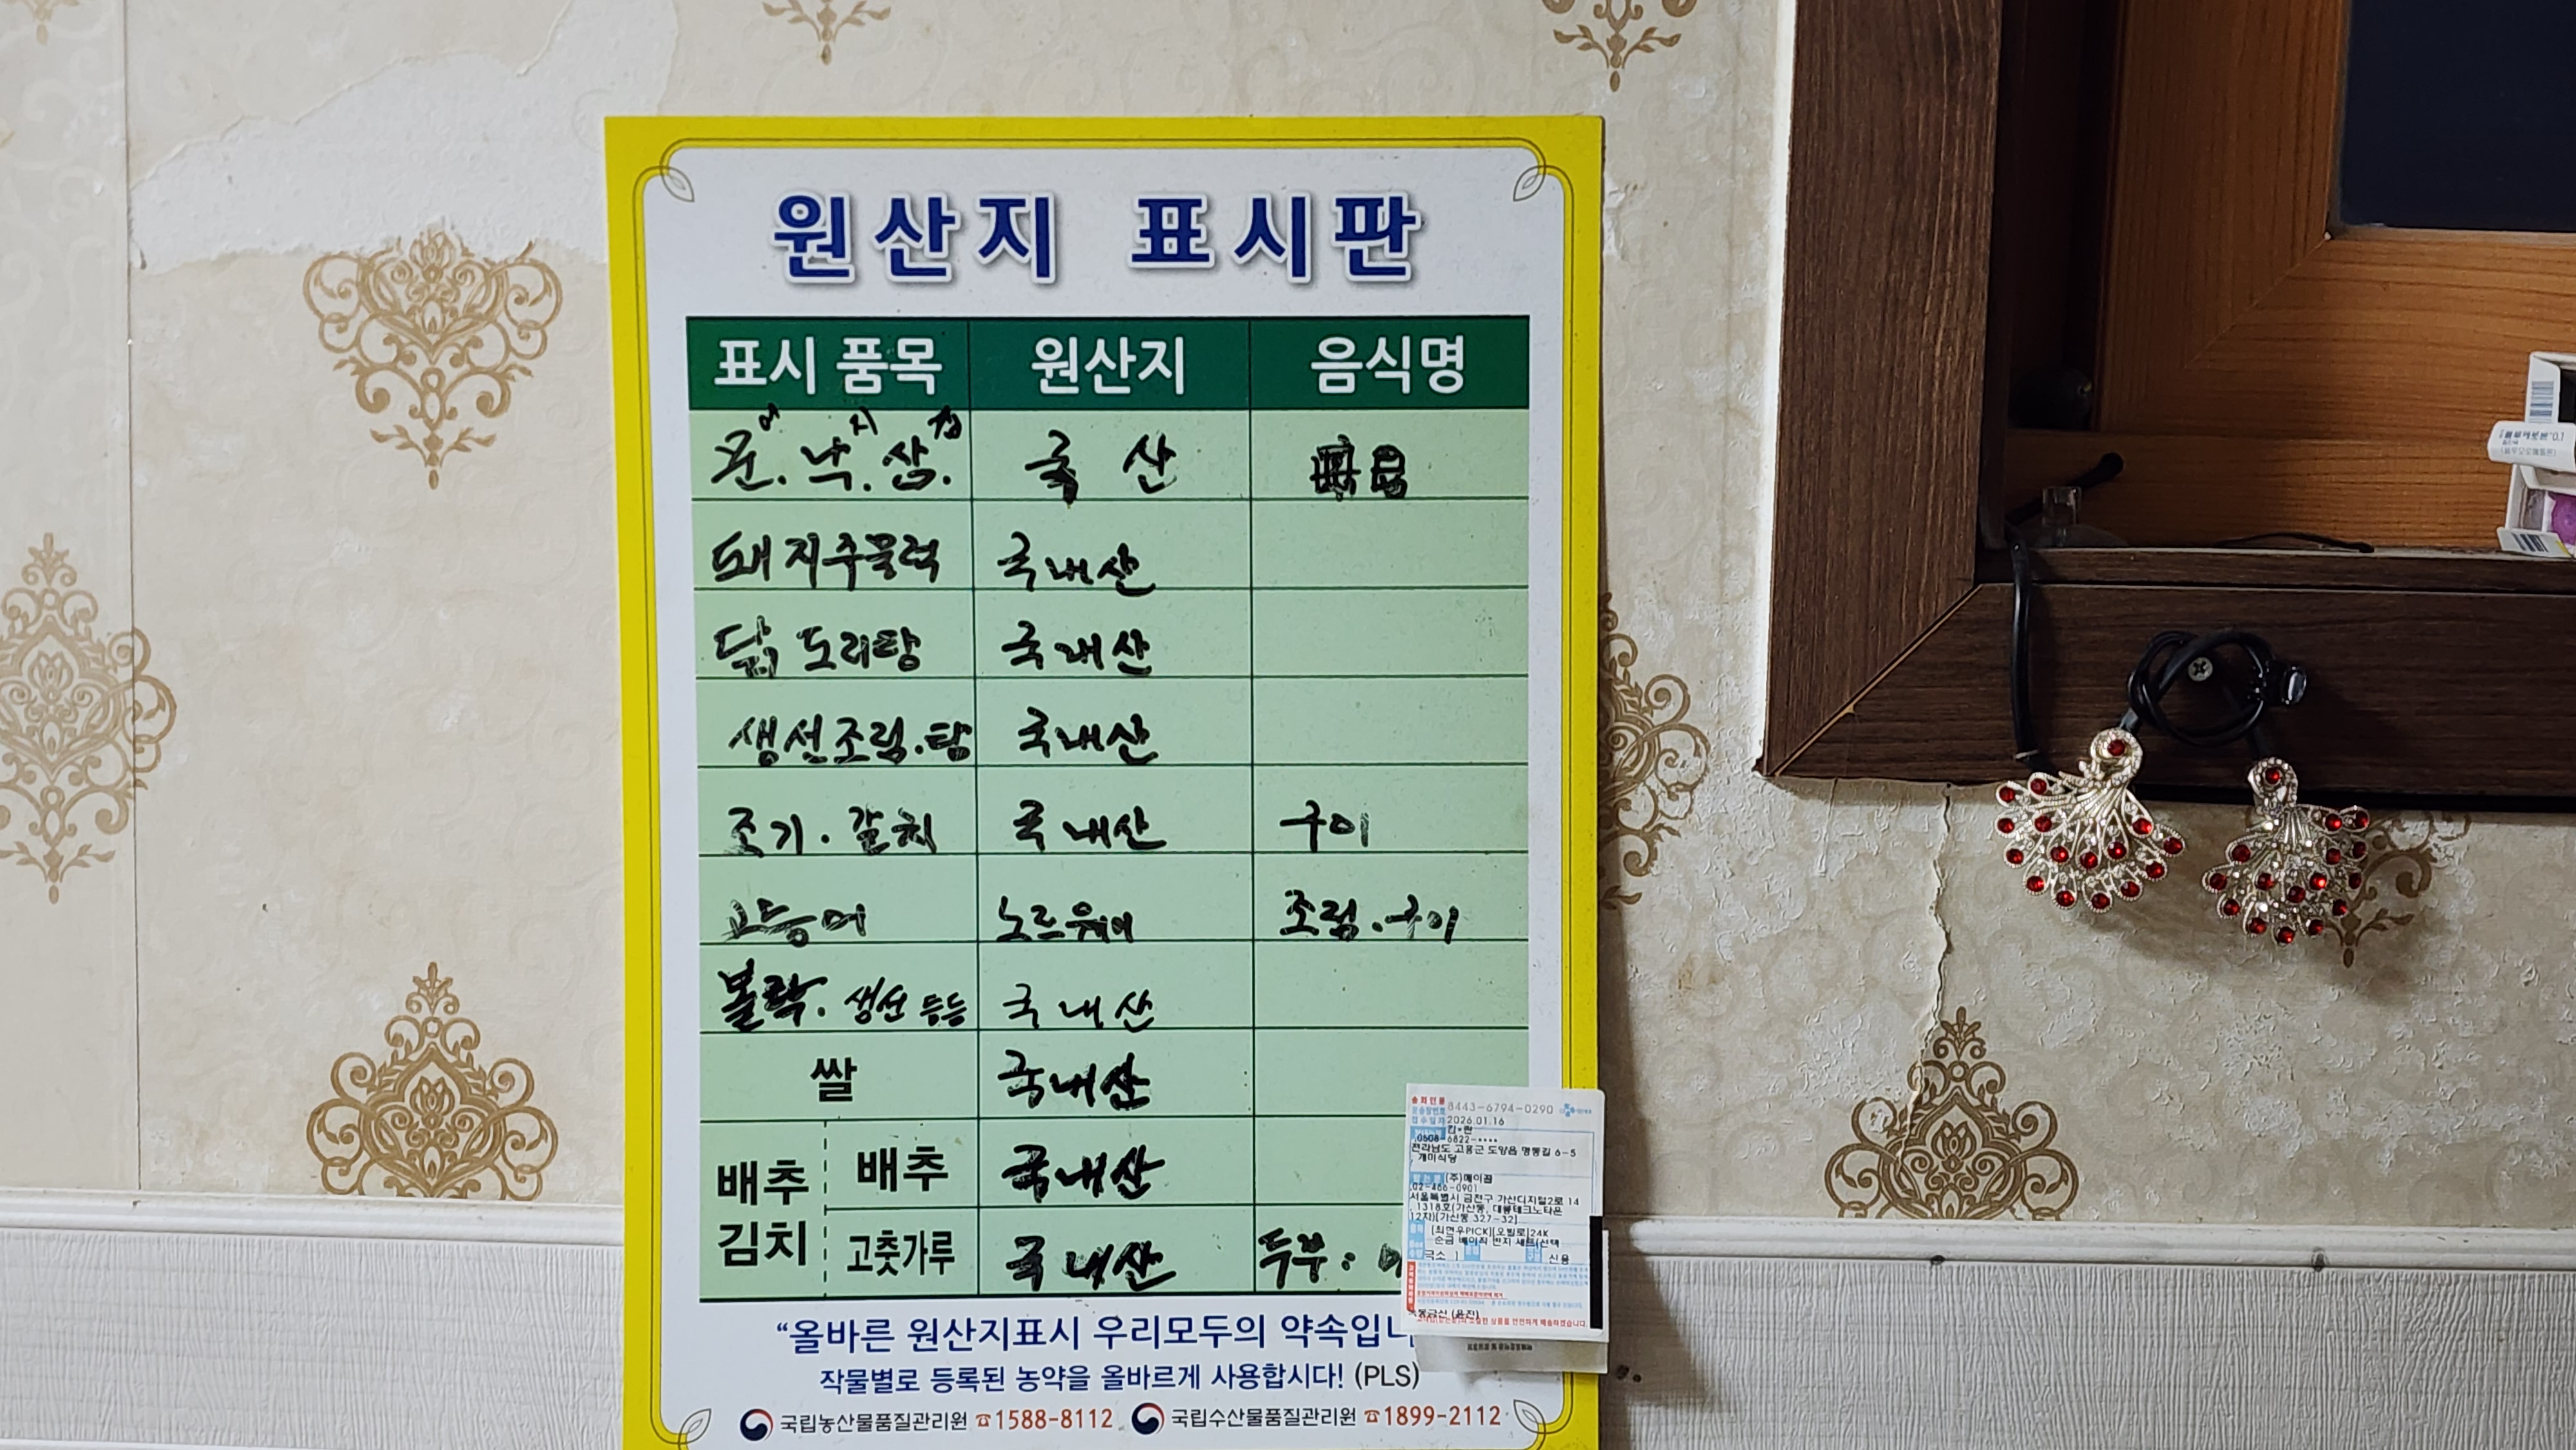 원산지 표시판
표시 품목 원산지 음식명
문어. 낙지. 삼겹. 국산
돼지주물럭 국내산
닭도리탕 국내산
생선조림.탕 국내산
조기.갈치 국내산 구이
고등어 노르웨이 조림.구이
볼락. 생선 등등 국내산
쌀 국내산
배추김치 배추 국내산
고춧가루 국내산 두부:
“올바른 원산지표시 우리모두의 약속입니
작물별로 등록된 농약을 올바르게 사용합시다! (PLS)
국립농산물품질관리원 ☎1588-8112 국립수산물품질관리원 ☎1899-2112
8443-6794-0290
2026.01.16
0508-6822-****
전라남도 고흥군 도양읍 명동길 6-5
개미식당
(주)메이꼼
02-466-0901
서울특별시 금천구 가산디지털2로 14
1318호(가산동, 대륭테크노타운
12차)[가산동 327-32]
[최현우PICK][오빌로]24K
순금 베이직 반지 세트(선택
극소 1 신용